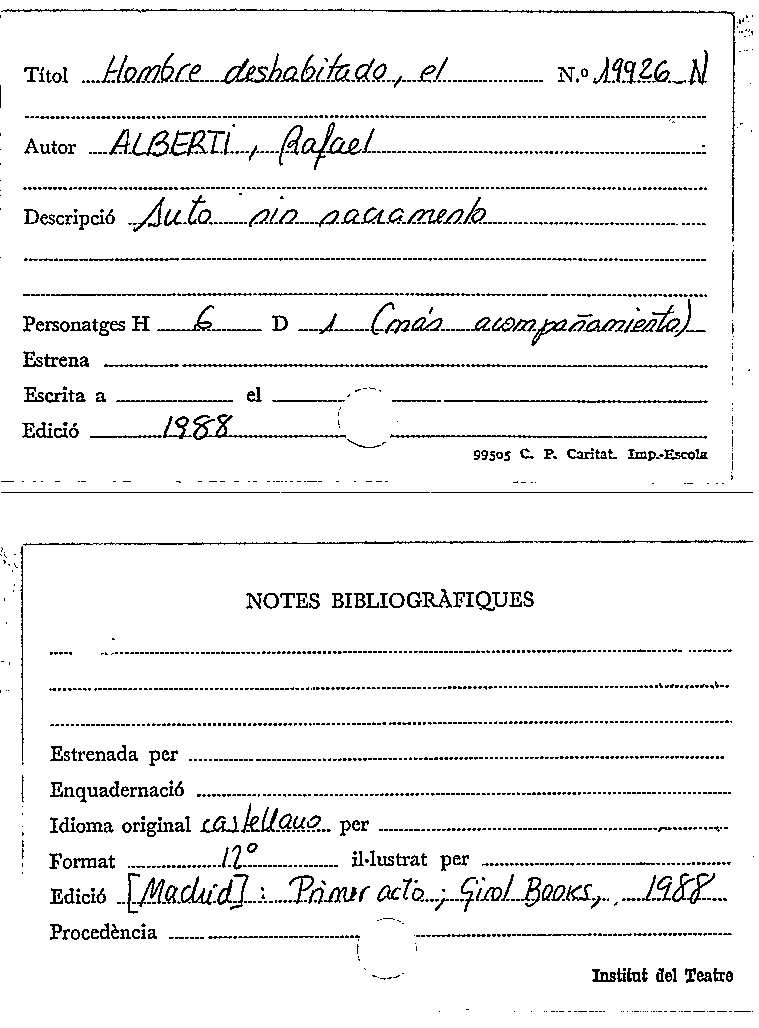 Títol Hombre deshabitado, el N.º 19926 N
Autor ALBERTI, Rafael
Descripció Auto sin sacramento
Personatges H 6 D 1 (más acompañamiento)
Estrena
Escrita a el
Edició 1988
99505 C. P. Caritat. Imp.-Escola
NOTES BIBLIOGRÀFIQUES
Estrenada per
Enquadernació
Idioma original castellano per
Format 12º il·lustrat per
Edició [Madrid] : Primer acto ; Girol Books, 1988
Procedència
Institut del Teatre